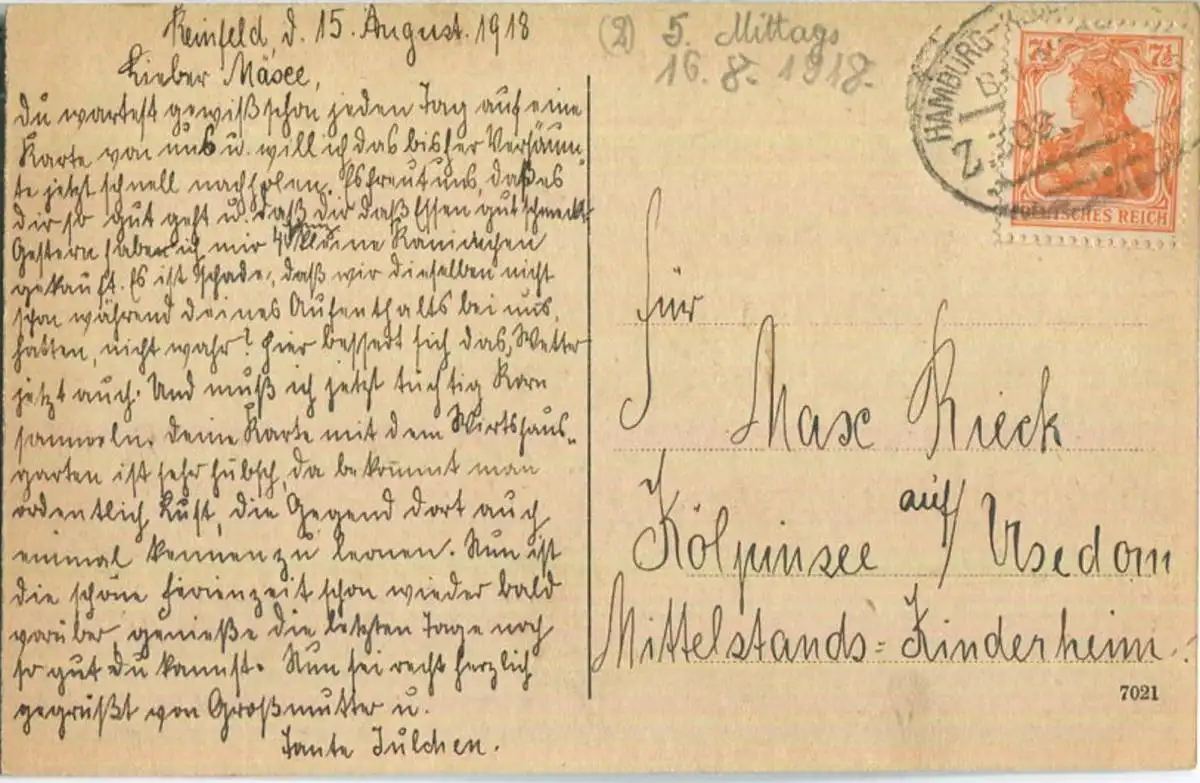 Reinfeld, d. 15. August. 1918
Lieber Maxe,
du wartest gewiß schon jeden Tag auf eine
Karte von uns u. will ich das bisher Versäum-
te jetzt schnell nachholen. Es freut uns, daß es
dir so gut geht u. daß dir daß Essen gut schmeckt.
Gestern haben ich mir 4 kleine Kaninchen
gekauft. Es ist schade, daß wir dieselben nicht
schon während deines Aufenthalts bei uns,
hatten, nicht wahr? Hier bessert sich das Wetter
jetzt auch. Und muß ich jetzt tüchtig Korn
sammeln. Deine Karte mit dem Wirtshaus-
garten ist sehr hübsch, da bekommt man
ordentlich Lust, die Gegend dort auch
einmal kennen zu lernen. Nun ist
die schöne Ferienzeit schon wieder bald
vorüber, genieße die letzten Tage noch
so gut du kannst. Nun sei recht herzlich
gegrüßt von Großmutter u.
Tante Julchen.
(2) 5. Mittags
16. 8. 1918.
HAMBURG-
7½ 7½
DEUTSCHES REICH
Für
Max Rieck
Kölpinsee auf/ Usedom
Mittelstands=Kinderheim.
7021